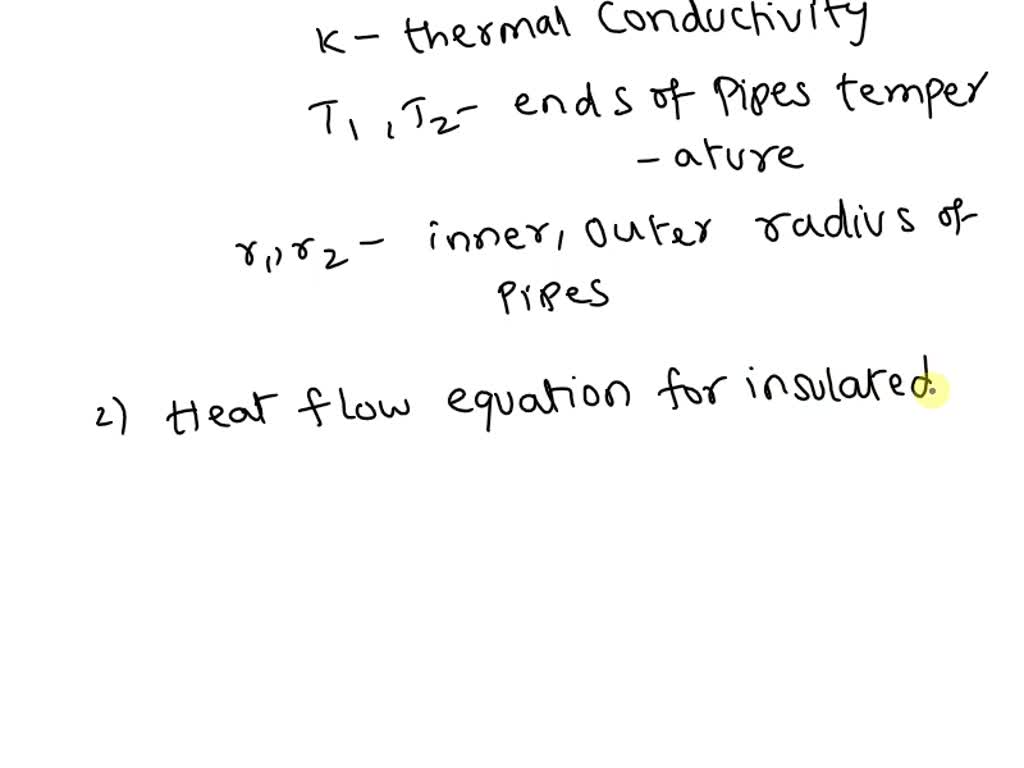 K - thermal Conductivity
T1, T2 - ends of Pipes temper
- ature
r1, r2 - inner, outer radius of
Pipes
2) Heat flow equation for insulated